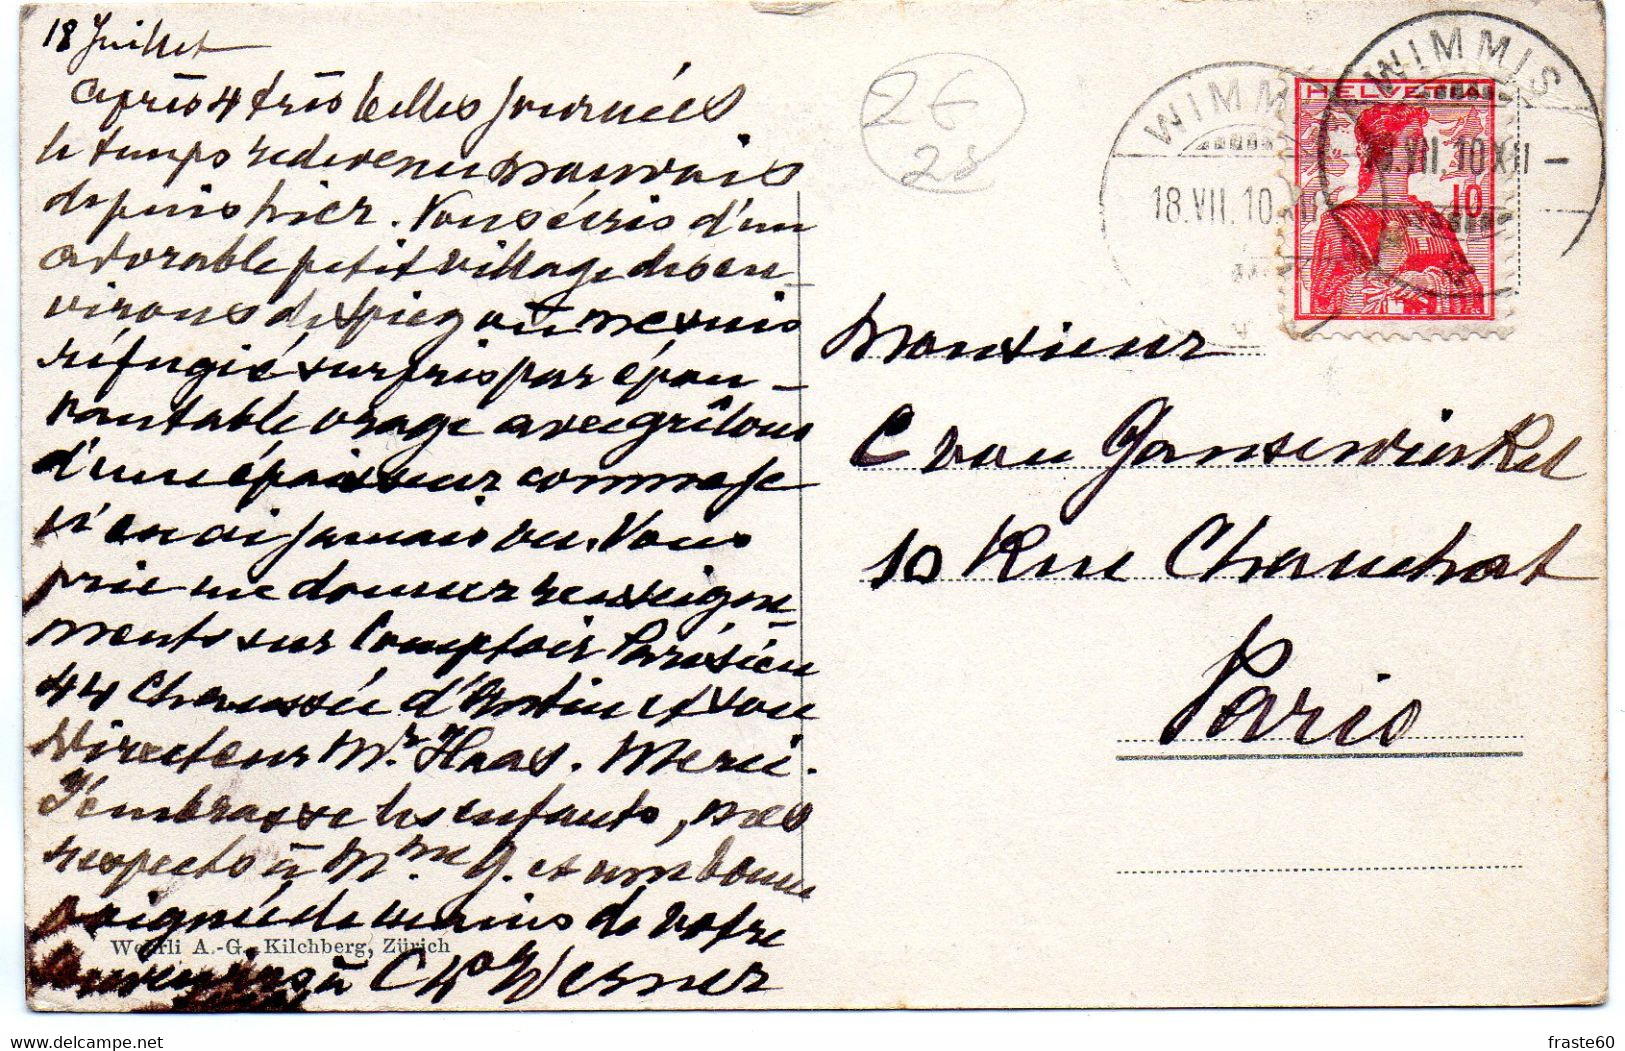 18 Juillet
Après 4 très belles journées
le temps redevenu mauvais
depuis hier. Vous écris d'un
adorable petit village des en-
virons de Spiez où me suis
réfugié surpris par épou-
vantable orage avec grêlons
d'une épaisseur comme je
n'en ai jamais vu. Vous
prie me donner renseigne-
ments sur Comptoir Parisien
44 Chaussée d'Antin et son
Directeur Mr Haas. Merci.
J'embrasse les enfants, mes
respects à Mme G. et une bonne
poignée de mains de votre
Chas Wesner
Wehrli A.-G., Kilchberg, Zürich
26
28
WIMMIS
18.VII.10
WIMMIS
18.VII.10 XII –
HELVETIA
10
Monsieur
C van Gansewinkel
10 Rue Chauchat
Paris
fraste60